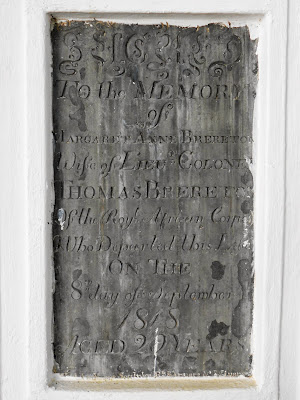 To the MEMORY
of
MARGARET ANNE BRERETON
Wife of LIEUt. COLONEL
THOMAS BRERETON
Of the Royl. African Corps
Who Departed this Life
ON THE
8th day of September
1818
AGED 2 YEARS